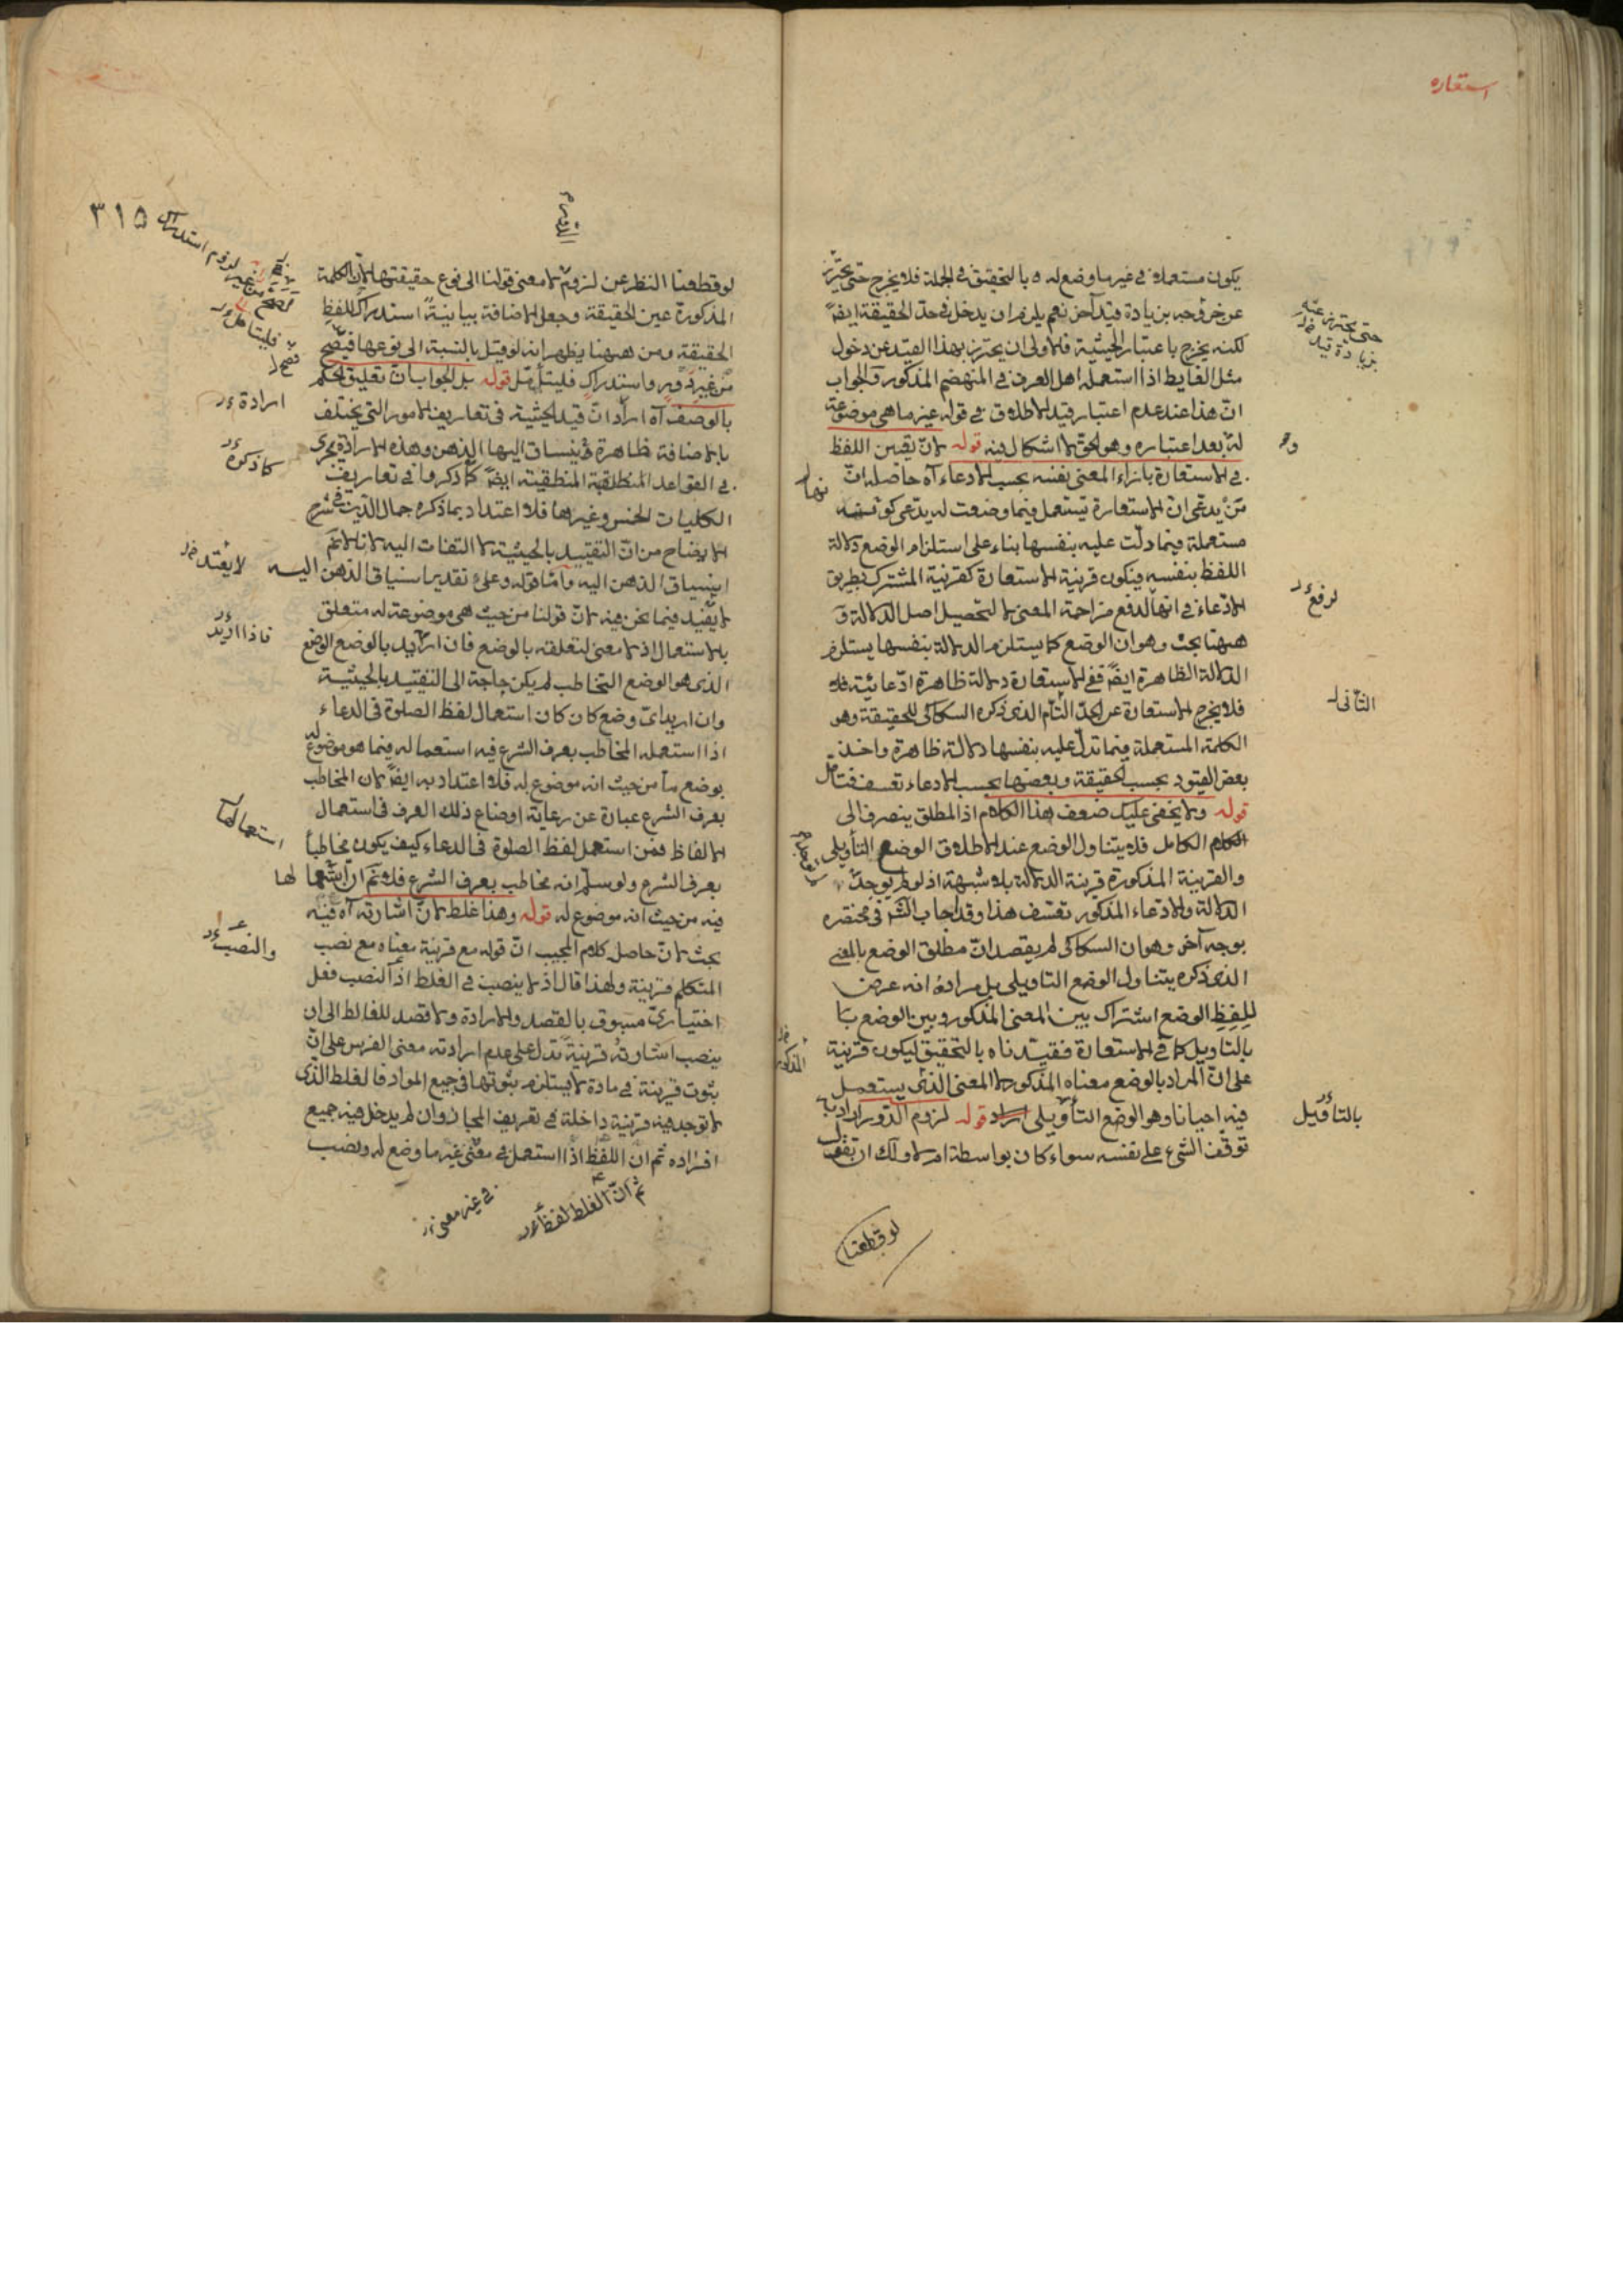 استعاره
يكون مستعملا في غير ما وضع له بالتحقيق في الجملة فلا يخرج حتى يحترز
عن خروجه بزيادة قيد آخر نعم يلزم ان يدخل في حد الحقيقة ايضا
لكنه يخرج باعتبار الحيثية فالاولى ان يحترز بهذا القيد عن دخول
مثل الغايط اذا استعمله اهل العرف في المنهضم المذكور والجواب
ان هذا عند عدم اعتبار قيد الاطلاق في قوله غير ما هي موضوعة
له بعد اعتباره وهو الحق لا اشكال فيه قوله لان تعين اللفظ
في الاستعارة بازاء المعنى نفسه بحسب الادعاء آه حاصله ان
من يدعى ان الاستعارة تستعمل فيما وضعت له يدعى
مستعملة فيما دلت عليه بنفسها بناء على استلزام الوضع دلالة
اللفظ بنفسه فيكون قرينة الاستعارة كقرينة المشترك بطريق
الادعاء في انها لدفع مزاحمة المعنى لا لتحصيل اصل الدلالة و
ههنا بحث وهو ان الوضع كما يستلزم الدلالة بنفسها يستلزم
الدلالة الظاهرة ايضا ففي الاستعارة دلالة ظاهرة ادعائية
فلا يخرج الاستعارة عن الحد التام الذي ذكره السكاكي للحقيقة وهو
الكلمة المستعملة فيما تدل عليه بنفسها دلالة ظاهرة واخذ
بعض القيود بحسب الحقيقة وبعضها بحسب الادعاء تعسف فتأمل
قوله ولا يخفى عليك ضعف هذا الكلام اذ المطلق ينصرف الى
الكامل فلا يتناول الوضع عند الاطلاق الوضع التأويلى
والقرينة المذكورة قرينة الدلالة بلا شبهة اذ لو لم يوجد
الدلالة والادعاء المذكور تعسف هذا وقد اجاب الشر في مختصره
بوجه آخر وهو ان السكاكي لم يقصد ان مطلق الوضع بالمعنى
الذي ذكره يتناول الوضع التاويلى بل مراده انه عرض
للفظ الوضع اشتراك بين المعنى المذكور وبين الوضع
بالتاويل كما في الاستعارة فقيدناه بالتحقيق ليكون قرينة
على ان المراد بالوضع معناه المذكور لا المعنى الذي يستعمل
فيه احيانا وهو الوضع التأويلى قوله لزوم الدور اراد به
توقف الشئ على نفسه سواء كان بواسطة ام لا ولك ان تقول
لو قطعنا
حتى يحترز عنه
بزيادة قيد
لرفع
الثانى
المذكور
بالتاويل
٣١٥
لو قطعنا النظر عن لزومه لا معنى قولنا الى نوع حقيقتها لان الكلمة
المذكورة عين الحقيقة وجعل الاضافة بيانية استدراك للفظ
الحقيقة ومن ههنا يظهر انه لو قيل بالنسبة الى نوعها فيصح
من غير دور واستدراك فليتأمل قوله بل الجواب ان تعليق الحكم
بالوصف آه اراد ان قيد الحيثية في تعاريف الامور التي يختلف
بالاضافة ظاهرة فينساق اليها الذهن وهذه الارادة يجرى
في القواعد المنطقية ايضا كما ذكروا في تعاريف
الكليات الجنس وغيرها فلا اعتداد بما ذكره جمال الدين في شرح
الايضاح من ان التقييد بالحيثية لا التفات اليه لانا لا نم
انسياق الذهن اليه واما قوله وعلى تقدير انسياق الذهن اليه
لا يفيد فيما نحن فيه لان قولنا من حيث هي موضوعة له متعلق
بالاستعمال اذ لا معنى لتعلقه بالوضع فان اريد بالوضع الوضع
الذي هو الوضع التخاطب لم يكن حاجة الى التقييد بالحيثية
وان اريد اى وضع كان كان استعمال لفظ الصلوة في الدعاء
اذا استعمله المخاطب بعرف الشرع فيه استعماله فيما هو موضوع له
بوضع ما من حيث انه موضوع له فلا اعتداد به ايضا لان المخاطب
بعرف الشرع عبارة عن رعاية اوضاع ذلك العرف في استعمال
الالفاظ فمن استعمل لفظ الصلوة في الدعاء كيف يكون مخاطبا
بعرف الشرع ولو سلم انه مخاطب بعرف الشرع فلا نم ان استعمالها
فيه من حيث انه موضوع له قوله وهذا غلط لان اشارته آه فيه
بحث لان حاصل كلام المجيب ان قوله مع قرينة معناه مع نصب
المتكلم قرينة ولهذا قال اذ لا ينصب في الغلط اذ النصب فعل
اختياري مسبوق بالقصد والارادة ولا قصد للغالط الى ان
ينصب اشارته قرينة تدل على عدم ارادته معنى الفرس على ان
ثبوت قرينة في مادة لا يستلزم ثبوتها في جميع المواد فالغلط الذي
لا توجد فيه قرينة داخلة في تعريف المجاز وان لم يدخل فيه جميع
افراده ثم ان اللفظ اذا استعمل في معنى غير ما وضع له ونصب
ارادة
كما ذكره
لا يفيد
فاذا اريد
استعمالها
والنصب
ثم ان الغلط لفظ
في غير معنى